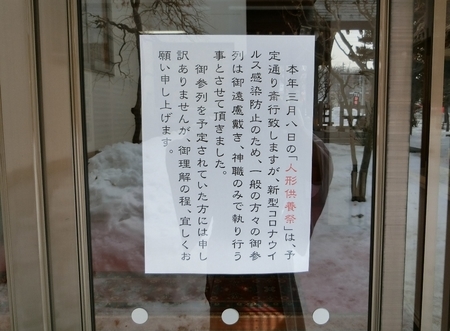 本年三月八日の「人形供養祭」は、予
定通り斎行致しますが、新型コロナウイ
ルス感染防止のため、一般の方々の御参
列は御遠慮戴き、神職のみで執り行う
事とさせて頂きました。
御参列を予定されていた方には申し
訳ありませんが、御理解の程、宜しくお
願い申し上げます。